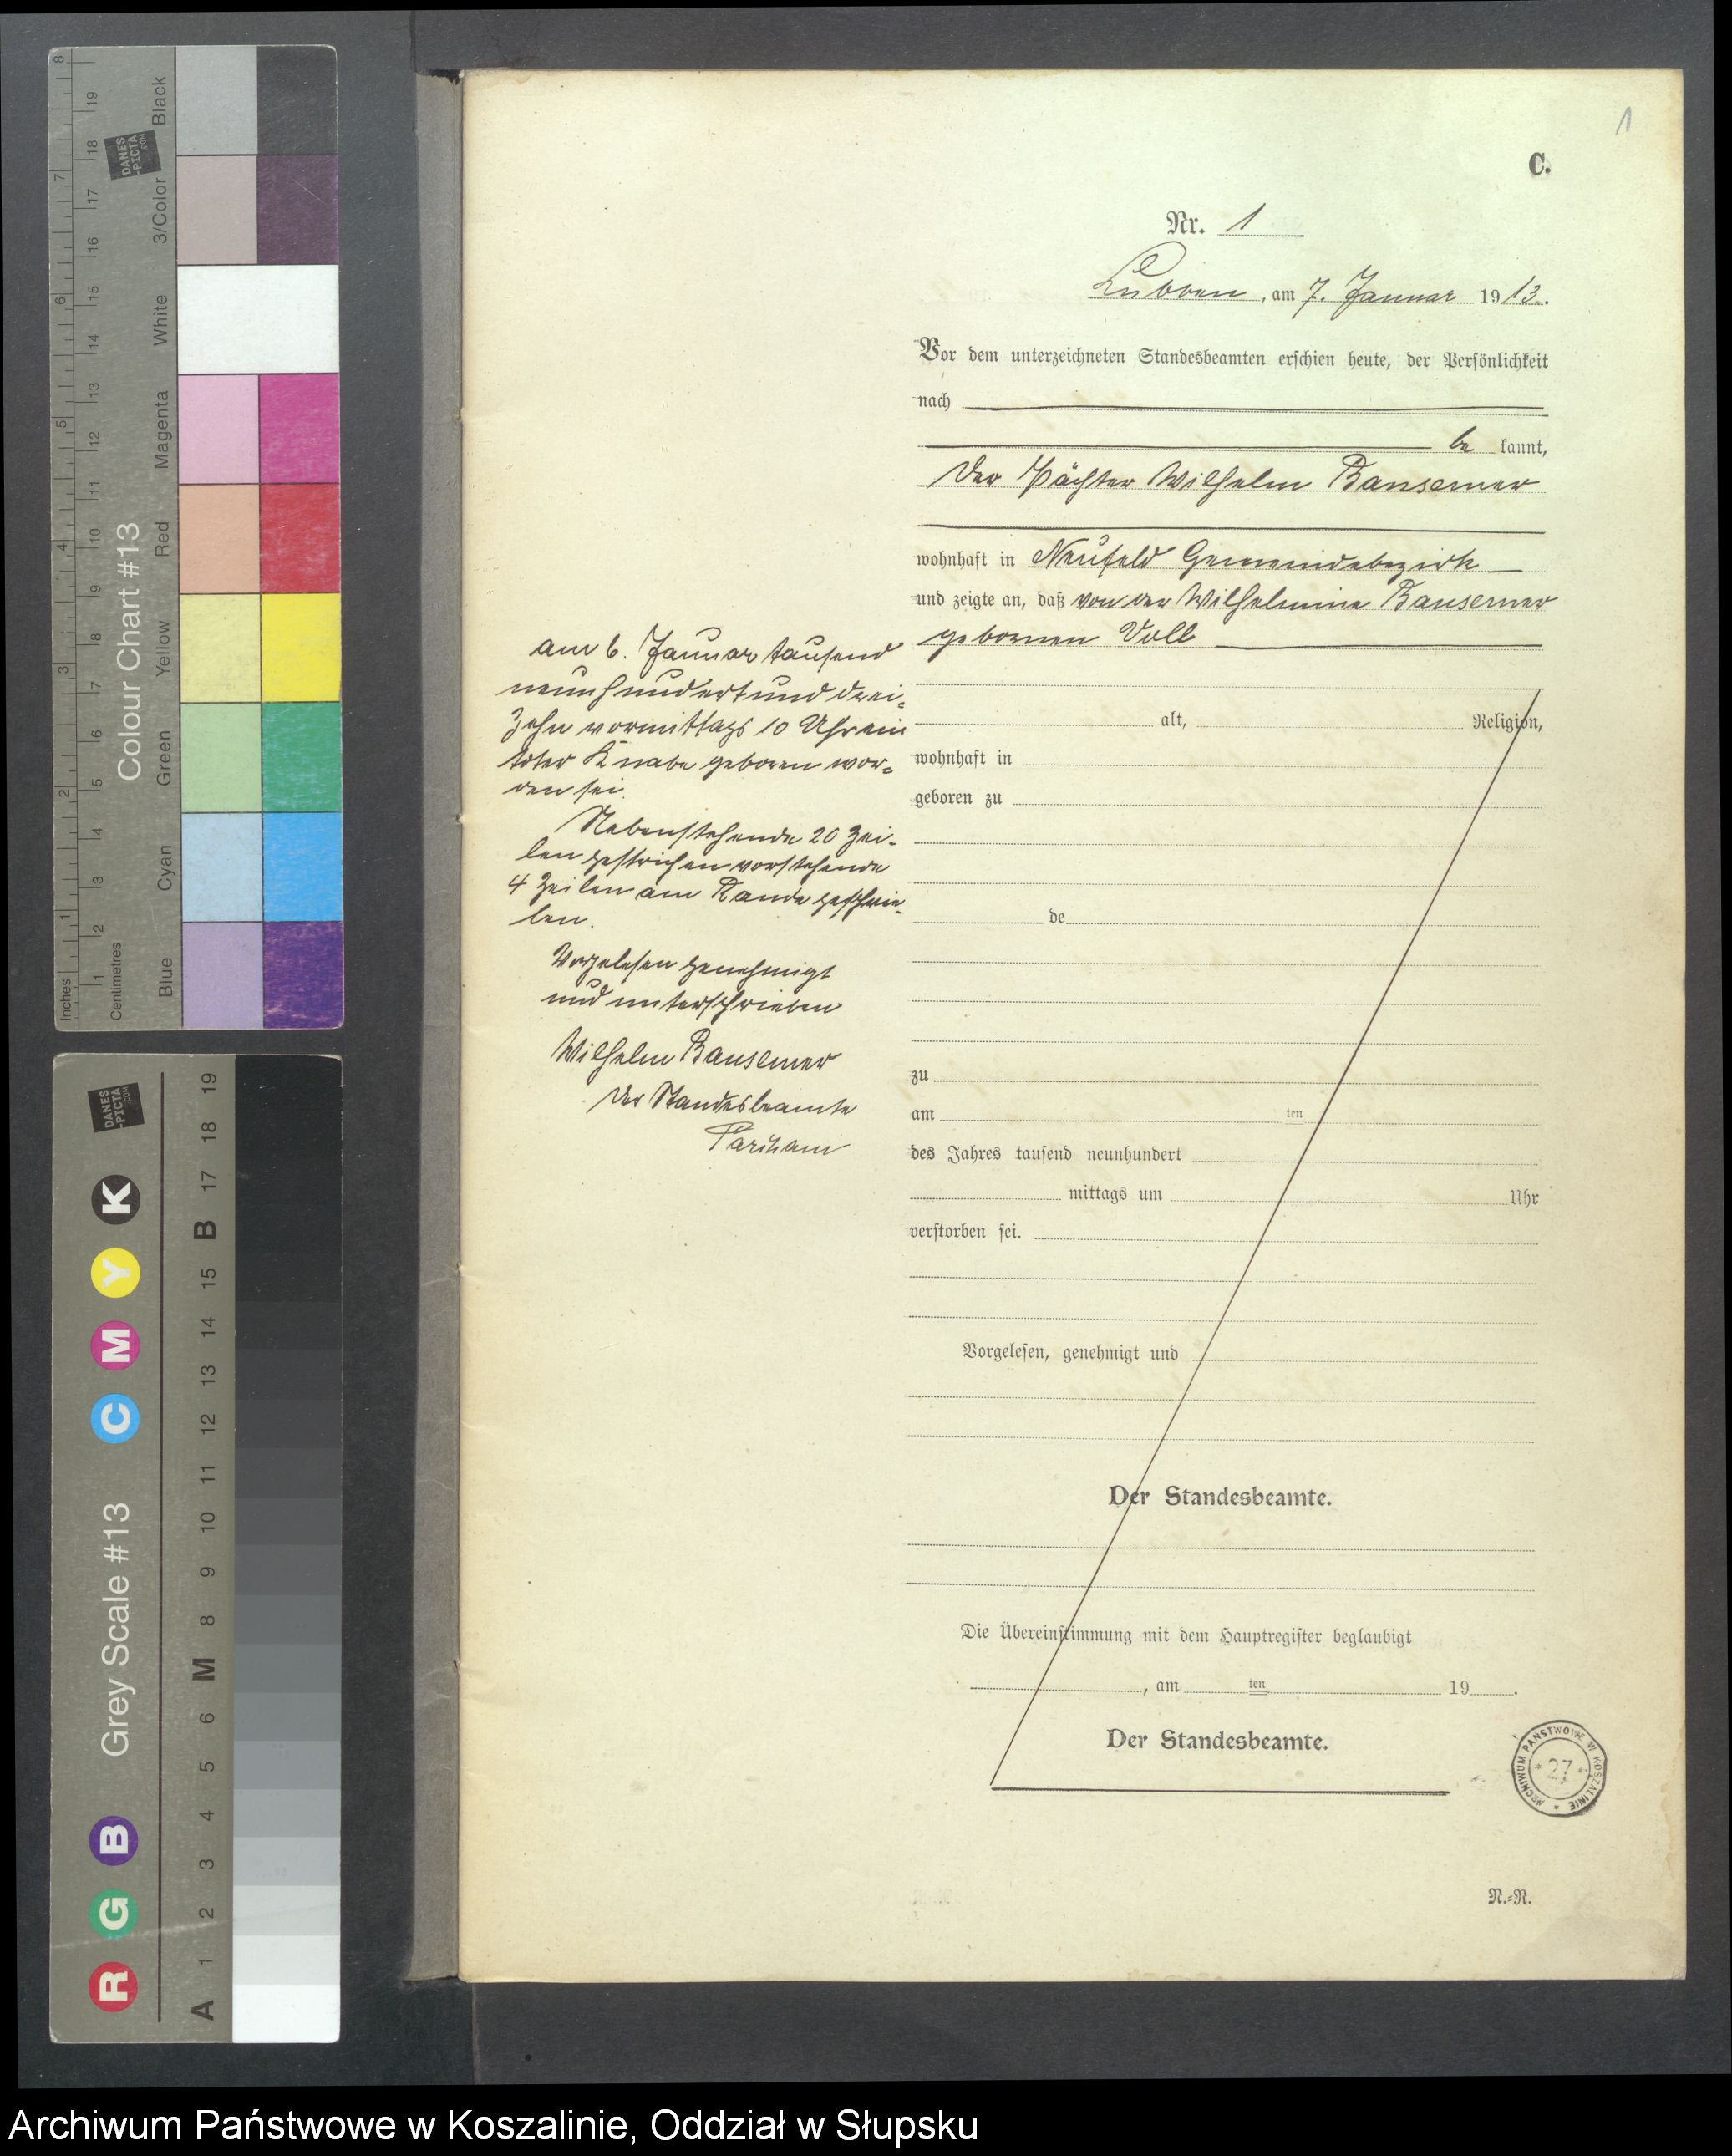 1
C.
Nr. 1
Lübben, am 7. Januar 1913.
Vor dem unterzeichneten Standesbeamten erschien heute, der Persönlichkeit
nach
be kannt,
der Pächter Wilhelm Bansemer
wohnhaft in Neufeld Gemeindebezirk
und zeigte an, daß von der Wilhelmine Bansemer
gebornen Voll
alt, Religion,
wohnhaft in
geboren zu
de
zu
am ten
des Jahres tausend neunhundert
mittags um Uhr
verstorben sei.
Vorgelesen, genehmigt und
Der Standesbeamte.
Die Übereinstimmung mit dem Hauptregister beglaubigt
, am ten 19 .
Der Standesbeamte.
N.=N.
am 6. Januar tausend
neunhundert und drei=
zehn vormittags 10 Uhr ein
toter Knabe geboren wor=
den sei.
Nebenstehende 20 Zei-
len gestrichen vorstehende
4 Zeilen am Rande geschrie-
ben.
Vorgelesen genehmigt
und unterschrieben
Wilhelm Bansemer
Der Standesbeamte
ARCHIWUM PAŃSTWOWE W KOSZALINIE
* 27 *
Colour Chart #13
Inches
1 2 3 4 5 6 7 8
Centimetres
1 2 3 4 5 6 7 8 9 10 11 12 13 14 15 16 17 18 19
Blue Cyan Green Yellow Red Magenta White 3/Color Black
DANES
-PICTA
.COM
Grey Scale #13
R G B C M Y K
A 1 2 3 4 5 6 M 8 9 10 11 12 13 14 15 B 17 18 19
DANES
-PICTA
.COM
Archiwum Państwowe w Koszalinie, Oddział w Słupsku